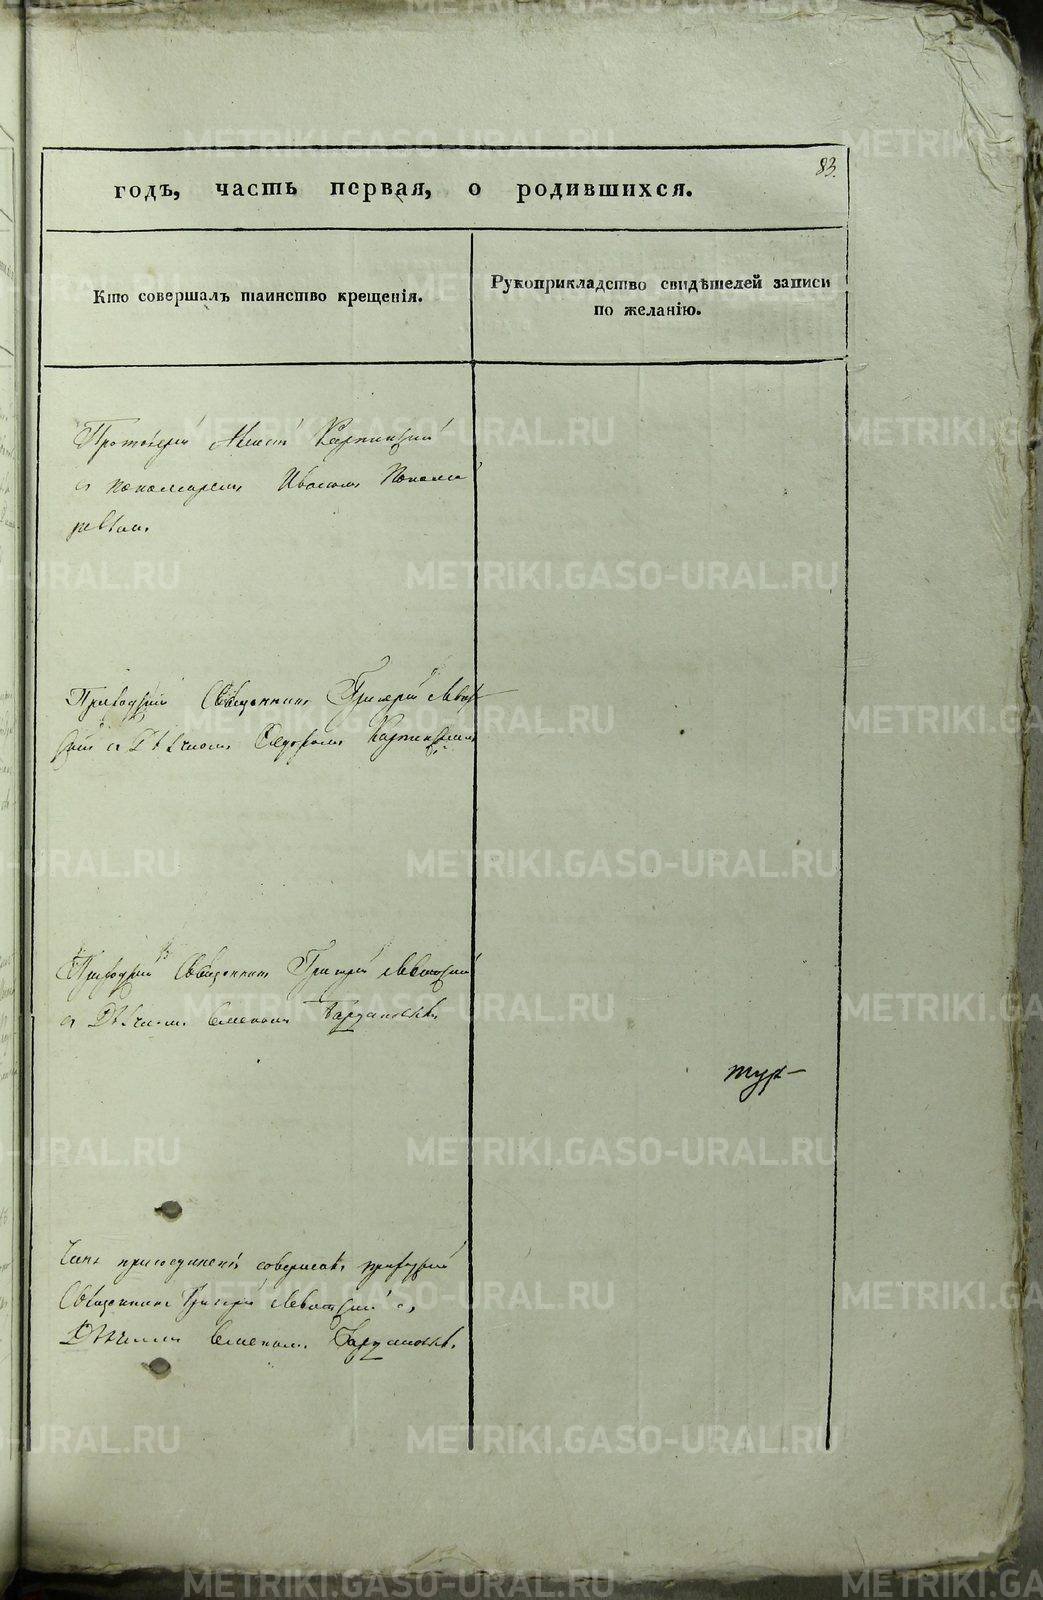 83.
годъ, часть первая, о родившихся.
Кто совершалъ таинство крещенія.
Рукоприкладство свидѣтелей записи
по желанію.
Протоіерей Карпинскій
съ пономаремъ Иваномъ Понома
ревымъ
Приходскій Священникъ Григорій Левит
скій съ Дьячкомъ Ѳедоромъ Карпинскимъ
Приходскій Священникъ Григорій Левитскій
съ Дьячкомъ Семеномъ
Чинъ присоединенія совершалъ приходскій
Священникъ Григорій Левитскій съ
Дьячкомъ Семеномъ
METRIKI.GASO-URAL.RU